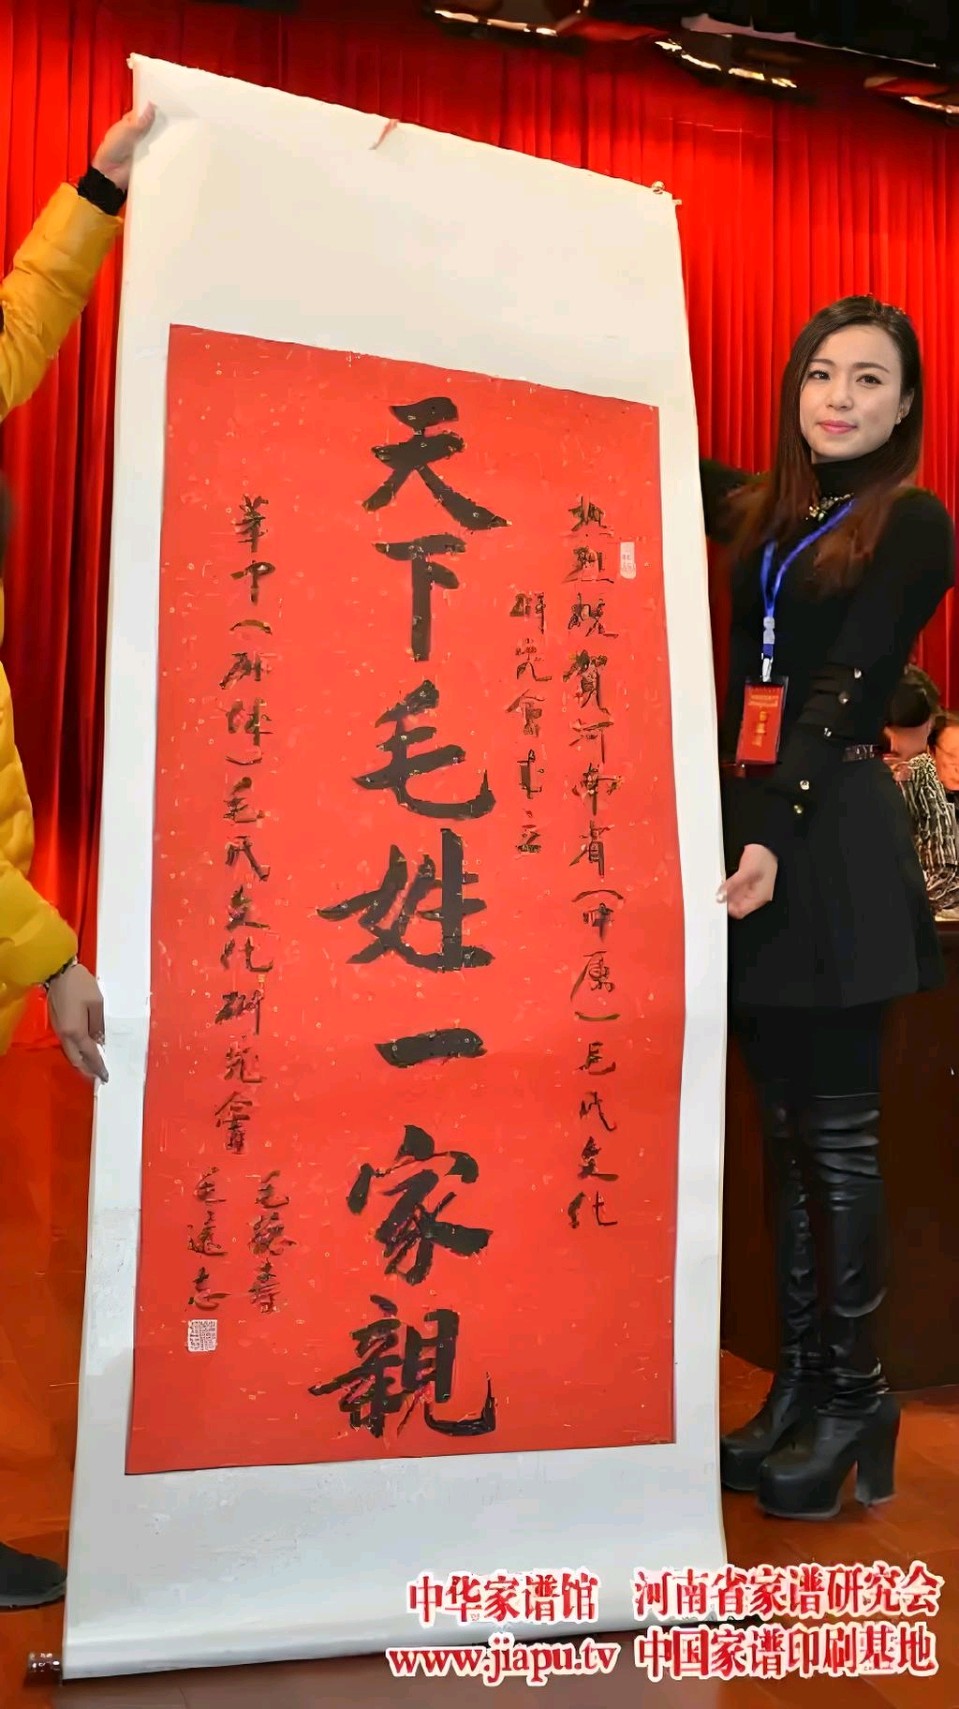 热烈祝贺河南省（中原）毛氏文化
研究会成立
天下毛姓一家親
華中（湖北）毛氏文化研究會
毛遠志
中华家谱馆 河南省家谱研究会
www.jiapu.tv 中国家谱印刷基地